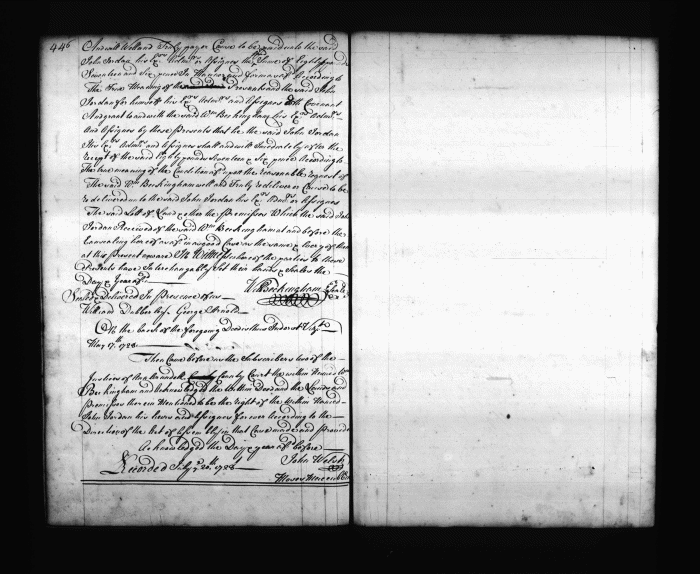 446
And will Well and Truly pay or Cause to be paid unto the said
John Jordan his Exrs Admrs or Assigns the Sume of Eight pounds
Seventeen and Six pence In Manner and form as aforesd According to
The True Meaning of these Presents and the said John
Jordan for himself his Exrs Admrs and Assigns doth Covenant
and grant to and with the said Wm Beckingham his Exrs Admrs
And Assigns by these Presents that he the said John Jordan
His Exrs Admrs and Assigns shall and will Imediately after the
receipt of the said Eight pounds Seventeen & Six pence According to
The true meaning of the Condition of upon the reasonable request of
The said Wm Beckingham well and Truly redeliver or Cause to be
redelivered unto the said John Jordan his Exrs Admrs or Assigns
The said Lott of Land & other the premisses Which the said John
Jordan Received of the said Wm Beckingham at and before the
Ensealing hereof as in as good Case as the same & Every of them
at this present are In Wittness whereof the parties to these
Presents have Interchangably Set their hands & Seales the
Day & Year
Wm Beckingham
Sealed & Delivered In presence of us
William Dabber George Arnold
On the back of the foregoing Deed is thus Indorst Viz
May 17th 1728
Then Came before us the Subscribers two of the
Justices of Ann Arundell County Court the within Named Wm
Beckingham and Acknowledged the within Deed and the Lands and
premisses therein Mentioned to be the right of the Within Named
John Jordan his heirs and Assigns for ever According to the
Direction of the Act of Assembly in that Case made and provided
Acknowledged the Day & year afd before
John Welsh
Recorded July 20th 1728